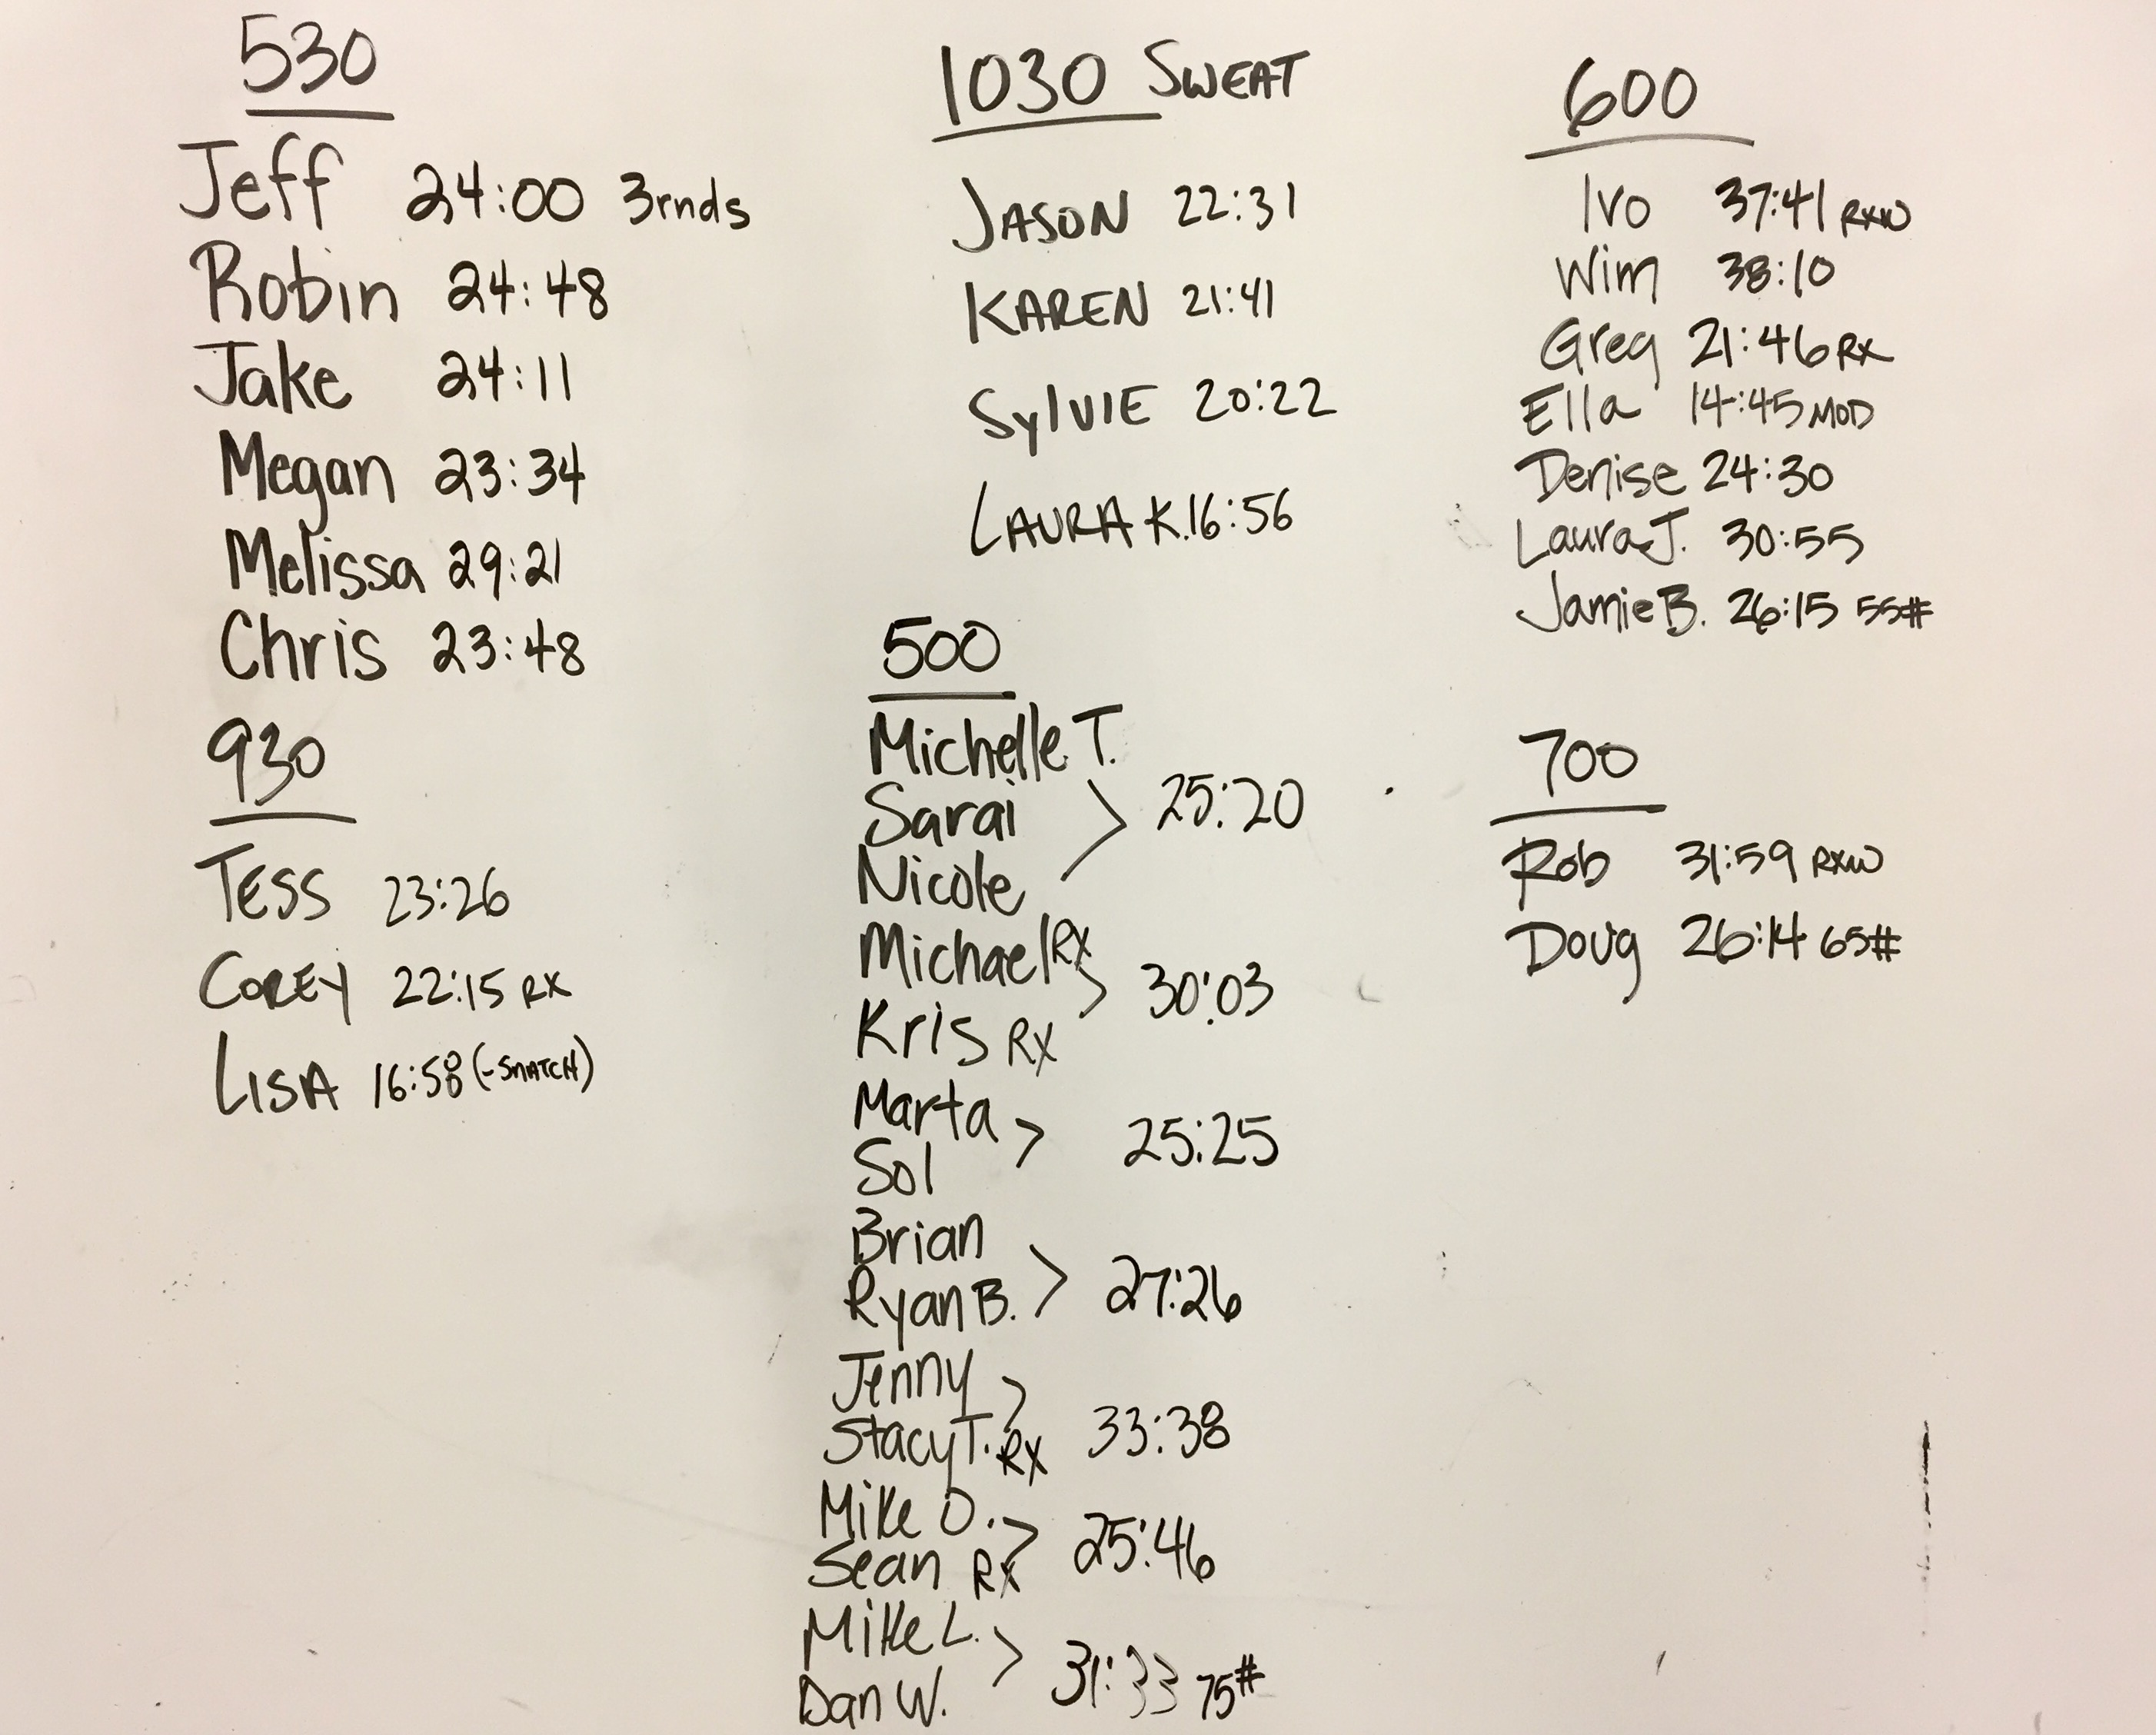 530
Jeff 24:00 3rnds
Robin 24:48
Jake 24:11
Megan 23:34
Melissa 29:21
Chris 23:48
930
TESS 23:26
COREY 22:15 RX
LISA 16:58 (-SNATCH)
1030 SWEAT
JASON 22:31
KAREN 21:41
SylVIE 20:22
LAURA K. 16:56
500
Michelle T.
Sarai > 25:20
Nicole
Michael RX
> 30:03
Kris RX
Marta > 25:25
Sol
Brian
Ryan B. > 27:26
Jenny >
Stacy T. RX 33:38
Mike O. > 25:46
Sean RX
Mike L. > 31:33 75#
Dan W.
600
Ivo 37:41 RXW
Wim 38:10
Greg 21:46 RX
Ella 14:45 MOD
Denise 24:30
Laura J. 30:55
Jamie B. 26:15 55#
700
Rob 31:59 RXW
Doug 26:14 65#